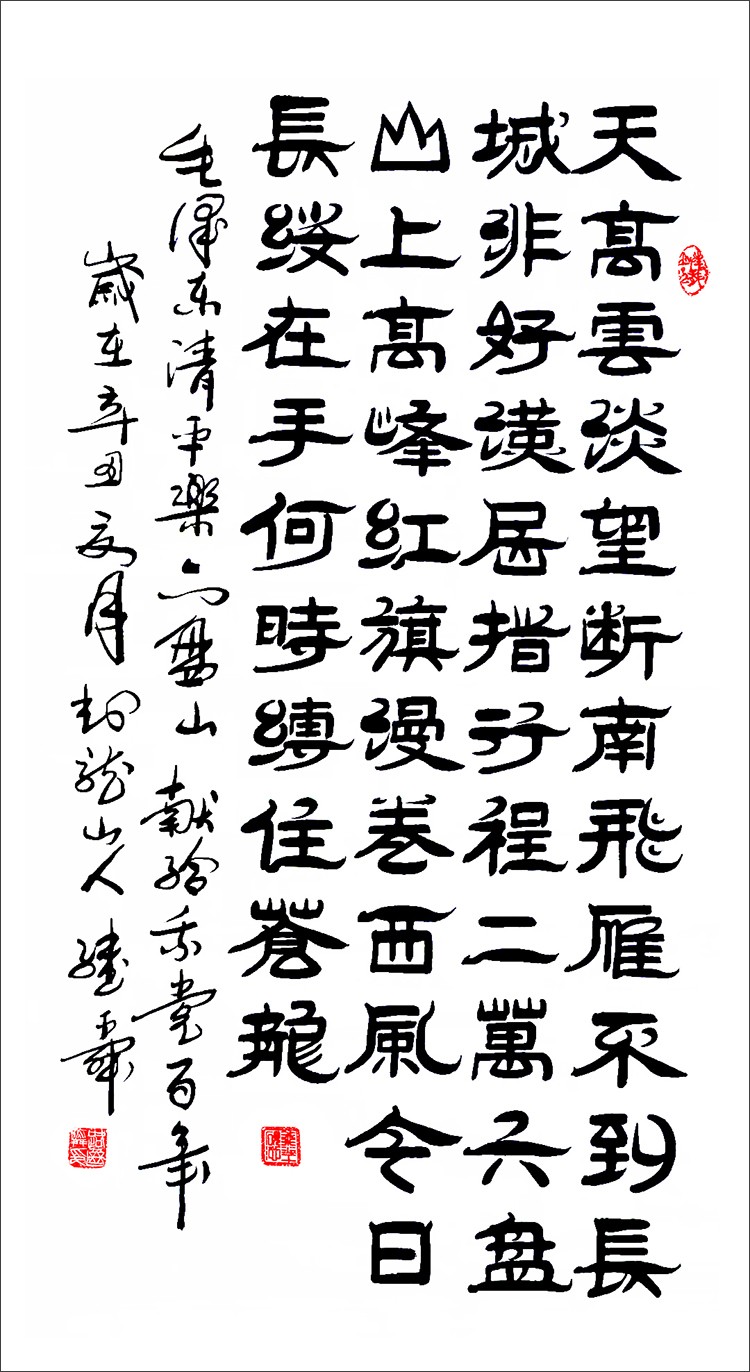 天髙雲淡望断南飛雁不到長
城非好漢屈指行程二萬六盘
山上髙峰紅旗漫卷西風今日
長纓在手何時縛住蒼龍
毛澤东清平樂六盘山 献给我黨百年
歲在辛丑 月 封龍山人